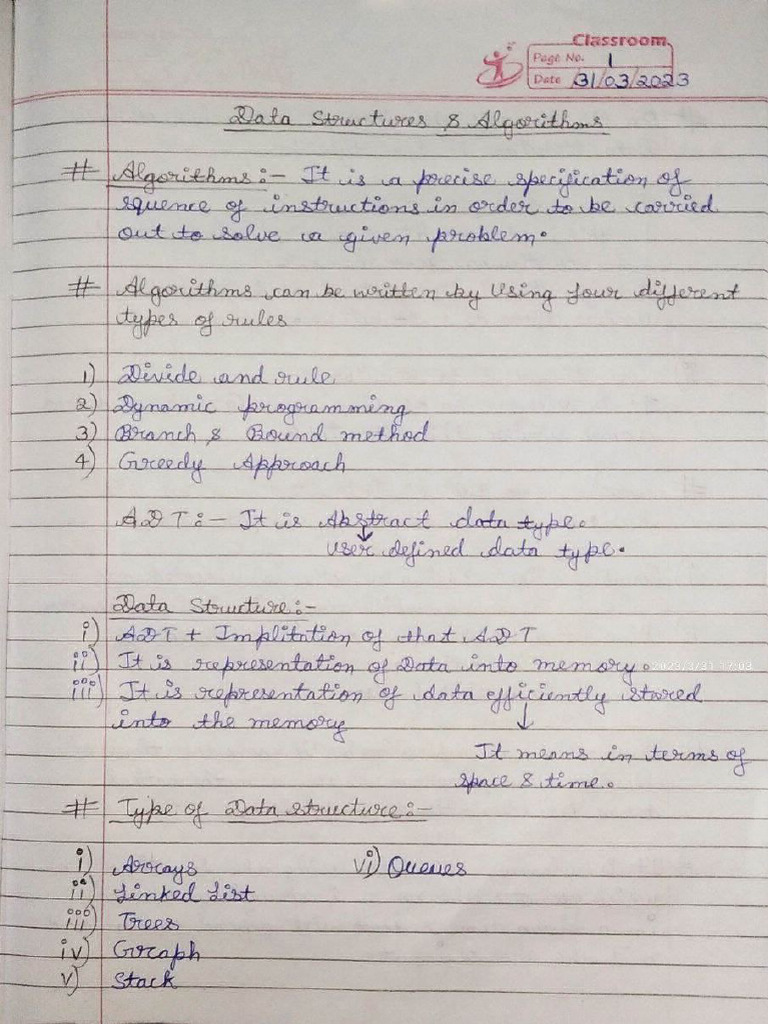 Classroom
Page No. 1
Date 31/03/2023
Data Structures & Algorithms
# Algorithms:- It is a precise specification of
squence of instructions in order to be carried
out to solve a given problem.
# Algorithms can be written by Using four different
types of rules
1) Divide and rule
2) Dynamic programming
3) Branch & Bound method
4) Greedy Approach
ADT:- It is Abstract data type.
↓
User defined data type.
Data Structure:-
i) ADT + Implitation of that ADT
ii) It is representation of Data into memory.
2023/3/31 17:03
iii) It is representation of data efficiently stored
into the memory
↓
It means in terms of
space & time.
# Type of Data structure:-
i) Arrays vi) Queues
ii) Linked List
iii) Trees
iv) Graph
v) Stack